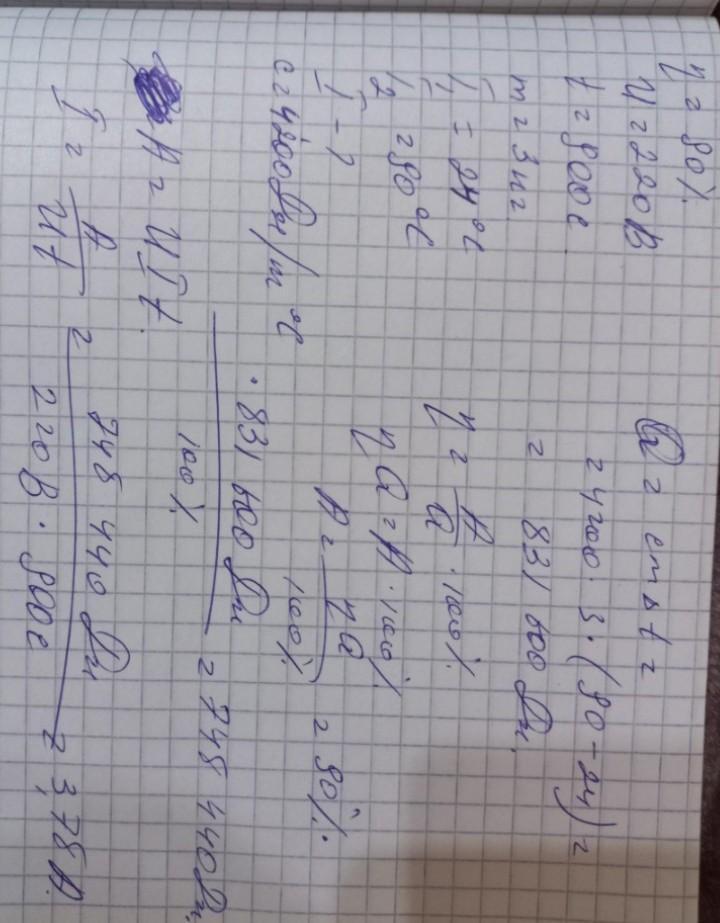 η = 90%
U = 220 В
t = 900 с
m = 3 кг
t₁ = 24 °C
t₂ = 90 °C
I - ?
c = 4200 Дж/m °C
Q = cm∆t =
= 4200 · 3 · (90 - 24) =
= 831 600 Дж.
η = A/Q · 100%
ηQ = A · 100%
A = ηQ/100% = 90% ·
· 831 600 Дж/100% = 748 440 Дж.
A = UIt.
I = A/Ut = 748 440 Дж/220 В · 900 с = 3,78 А.